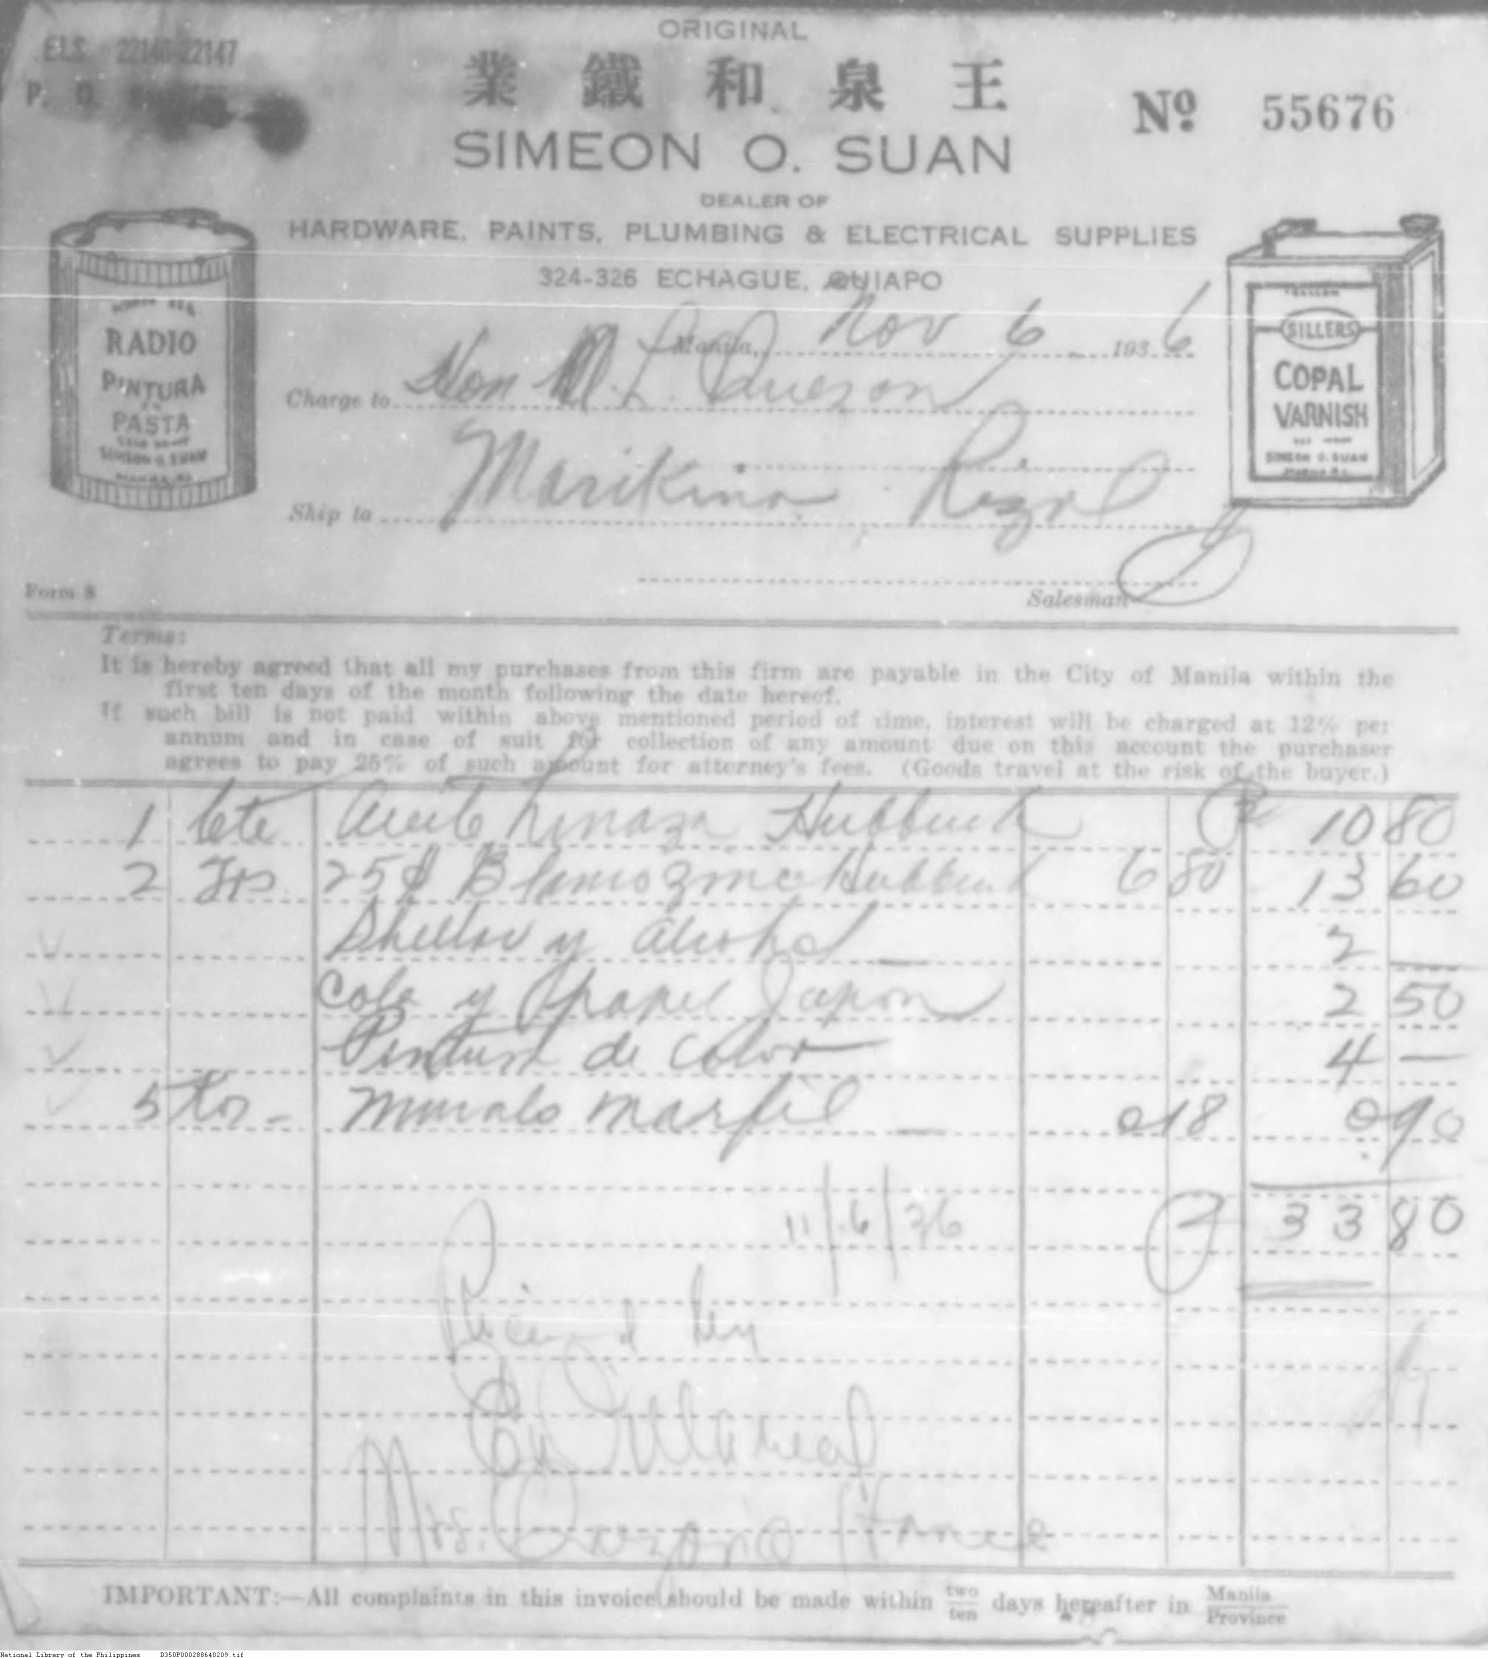 ORIGINAL
TELS. 22146-22147
P. O.
業 鐵 和 泉 王
Nº 55676
SIMEON O. SUAN
DEALER OF
HARDWARE, PAINTS, PLUMBING & ELECTRICAL SUPPLIES
324-326 ECHAGUE, QUIAPO
RADIO
PINTURA
EN
PASTA
SIMEON O. SUAN
MANILA, P.I.
GALLON
SILLERS
COPAL
VARNISH
SIMEON O. SUAN
MANILA P.I.
Manila, Nov 6 1936
Charge to Hon M. L. Quezon
Ship to Marikina Rizal
Form 8
Salesman
Terms:
It is hereby agreed that all my purchases from this firm are payable in the City of Manila within the
first ten days of the month following the date hereof.
If such bill is not paid within above mentioned period of time, interest will be charged at 12% per
annum and in case of suit for collection of any amount due on this account the purchaser
agrees to pay 25% of such amount for attorney's fees. (Goods travel at the risk of the buyer.)
1 lete Aceite Linaza Hubbuck 10 80
2 Trs 25# Blanco zinc Hubbuck 6 80 13 60
Shellac y Alcohol 2 —
Cola y Papel Japon 2 50
Pintura de Color 4 —
5 Kos - Muralo marfil — 0 18 0 90
11/6/36 33 80
Received by
Villareal
Mrs. Franco
IMPORTANT:—All complaints in this invoice should be made within two/ten days hereafter in Manila/Province
National Library of the Philippines D350P000288640209.tif